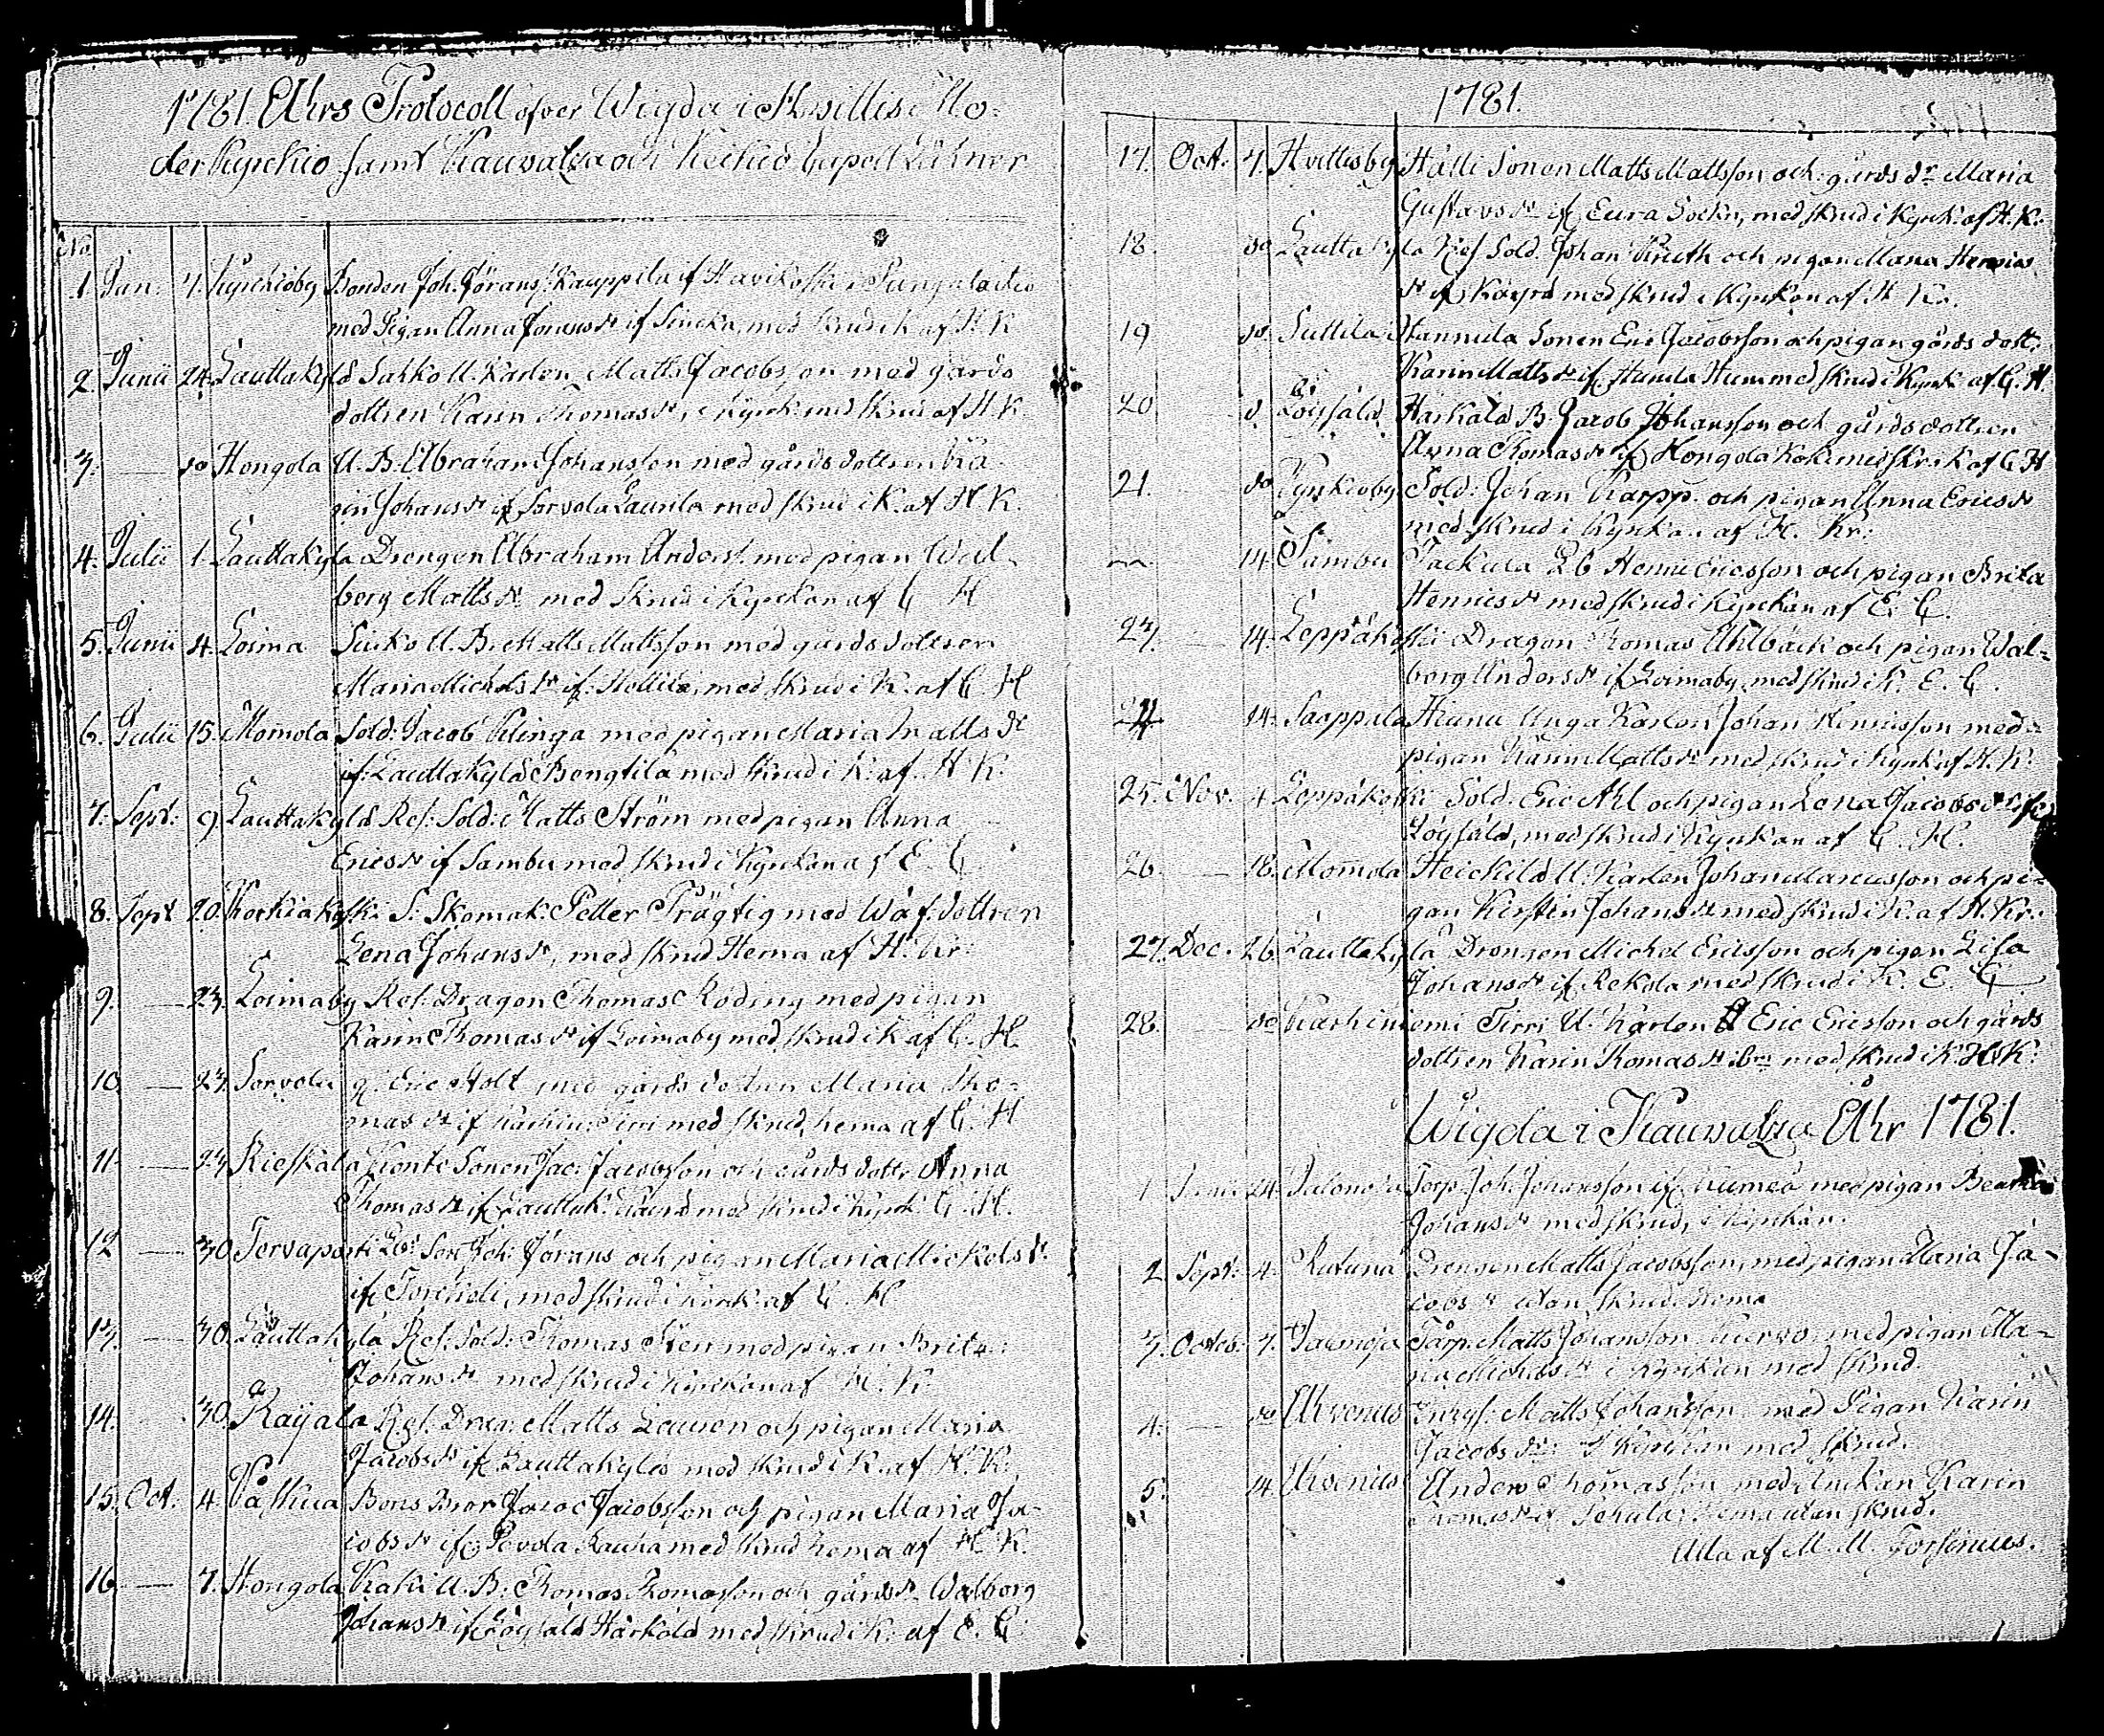 1781. Ahrs Protocoll öfver Wigda i Hvittis Mo-
der Kyrckio samt Kauvatza och Keikiö Capell
No
1 Jan. 7. Kyrckioby Bonden Joh. Jörans: Kauppila if
med Pigan Anna Joransdr if med skrud i K af H K
2 Junii 24. Lauttakylä Sakko U. Karlen Matts Jacobsson med gårds
dottren Karin Thomasdr, i Kyrck med skrud af H K
3. — do Hongola U. B. Abraham Johansson med gårds dottren Ka-
rin Johansdr if Sorvola Launla med skrud i K. af H K.
4. Julii 1. Lauttakyla Drengen Abraham Anders. med pigan Wal-
borg Mattsdr med skrud i Kyrckan af C H
5. Junii 4. Loima U. B. Matts Mattsson med gårds dottren
Maria Michelsdr if Mollila, med skrud i K. af C. H
6. Julii 15. Mom̄ola Sold: Jacob Klinga med pigan Maria Mattsdr
if Lauttakylä Bengtila med skrud i K. af H K.
7. Sept. 9. Lauttakylä Ref: Sold: Matts Ström med pigan Anna
Ericsdr if Sambu med skrud i Kyrckan af E. C
8. Sept 20. Korkiakoski S: Skomak: Petter Trägtig med Waf: dottren
Lena Johansdr, med skrud Hema af H. Kr:
9. — 23. Loimaby Ref: Dragon Thomas Röding med pigan
Karin Thomasdr if Loimaby med skrud i K af C. H.
10. — 23. Sorvola Eric Holt med gårds dottren Maria Tho-
masdr if Karhin: Tirri med skrud, hema af C. H
11. — 23. Rieskala Konto Sonen Jac: Jacobsson och gårds dottr Anna
Thomasdr if Lauttak: med skrud i Kyrck C. H.
12 — 30. Torvaporti Lbs Son Joh: Jörans och pigan Maria Michelsdr.
if med skrud i Kyrck: af C. H
13. — 30. Lauttakyla Ref: Sold: Thomas Sten med pigan Brita
Johansdr med skrud i Kyrckan af H. K
14. — 30. Raijala Ref: Drag: Matts Lauren och pigan Maria
Jacobsdr if Lauttakylä med skrud i K. af H. K.
15. Oct: 4. Bons Bror Jacob Jacobsson och pigan Maria Ja-
cobsdr if med skrud hema af H. K.
16. — 7. Hongola Kraki U. B: Thomas Thomasson och gårdsdr Walborg
Johansdr if Löysälä Härkälä med skrud i K. af E. C
1781.
17. Oct: 7. Hvittisby Hälli Sonen Matts Mattsson och gårds dr Maria
Gustavsdr if Eura Sockn, med skrud i Kyrck. af H. K.
18. do Lauttakyla Ref Sold. Johan och pigan Maria Henrics
dr if Käyrä med skrud i Kyrckan af H K.
19 do. Suttila Hannula Sonen Eric Jacobsson och pigan gårds dott.
Karin Mattsdr if Hum med skrud i Kyrck. af C. H
20 d. Löysälä Härkälä B. Jacob Johansson och gårds dottren
Anna Thomasdr if Hongola med skr. i K af C H
21. do Kyrkioby Sold: Johan Karpp. och pigan Anna Ericsdr
med skrud i Kyrkan af H. Kr:
14. Sambu Tackula Lb Henric Ericsson och pigan Brita
Henricsdr med skrud i Kyrckan af E. C.
23. — 14. Leppäkoski Dragon Thomas Ahlbäck och pigan Wal-
borg Andersdr if Loimaby, med skrud i K. E. C.
24 14. Saappala Unga Karlen Johan Henricsson med
pigan Karin Mattsdr med skrud i Kyrk af H. K.
25. Nov. 4 Leppäkoski Sold. Eric Ahl och pigan Lena Jacobsdr if
Löysälä, med skrud i Kyrkan af C. H.
26. — 18. Mom̄ola Heickilä U. Karlen Johan Marcusson och pi-
gan Kirstin Johansdr med skrud i K. af H. Kr.
27. Dec. 26. Lauttakylä Drengen Michel Ericsson och pigan Lisa
Johansdr if Rekola med skrud i K. E. C
28. — do Karhiniemi Tirri U. Karlen Eric Ericsson och gårds
dottren Karin Thomasdr med skrud i K. H K.
Wigda i Kauvatza Åhr 1781.
1 Junii 24. Torp. Joh: Johansson if Kumeo med pigan Beata
Johansdr med skrud, i Kyrckan.
2. Sept: 4. Drengen Matts Jacobsson, med pigan Maria Ja-
cobsdr utan skrud hema
3. Octob: 7. Torp. Matts Johansson med pigan Ma-
ria i Kyrckan med skrud.
4. — do Matts Johansson med Pigan Karin
Jacobsdr i Kyrckan med skrud.
5. 14. Anders Thomasson med Enckan Karin
Thomasdr if hema utan skrud.
Alla af M. M. Forsenius.